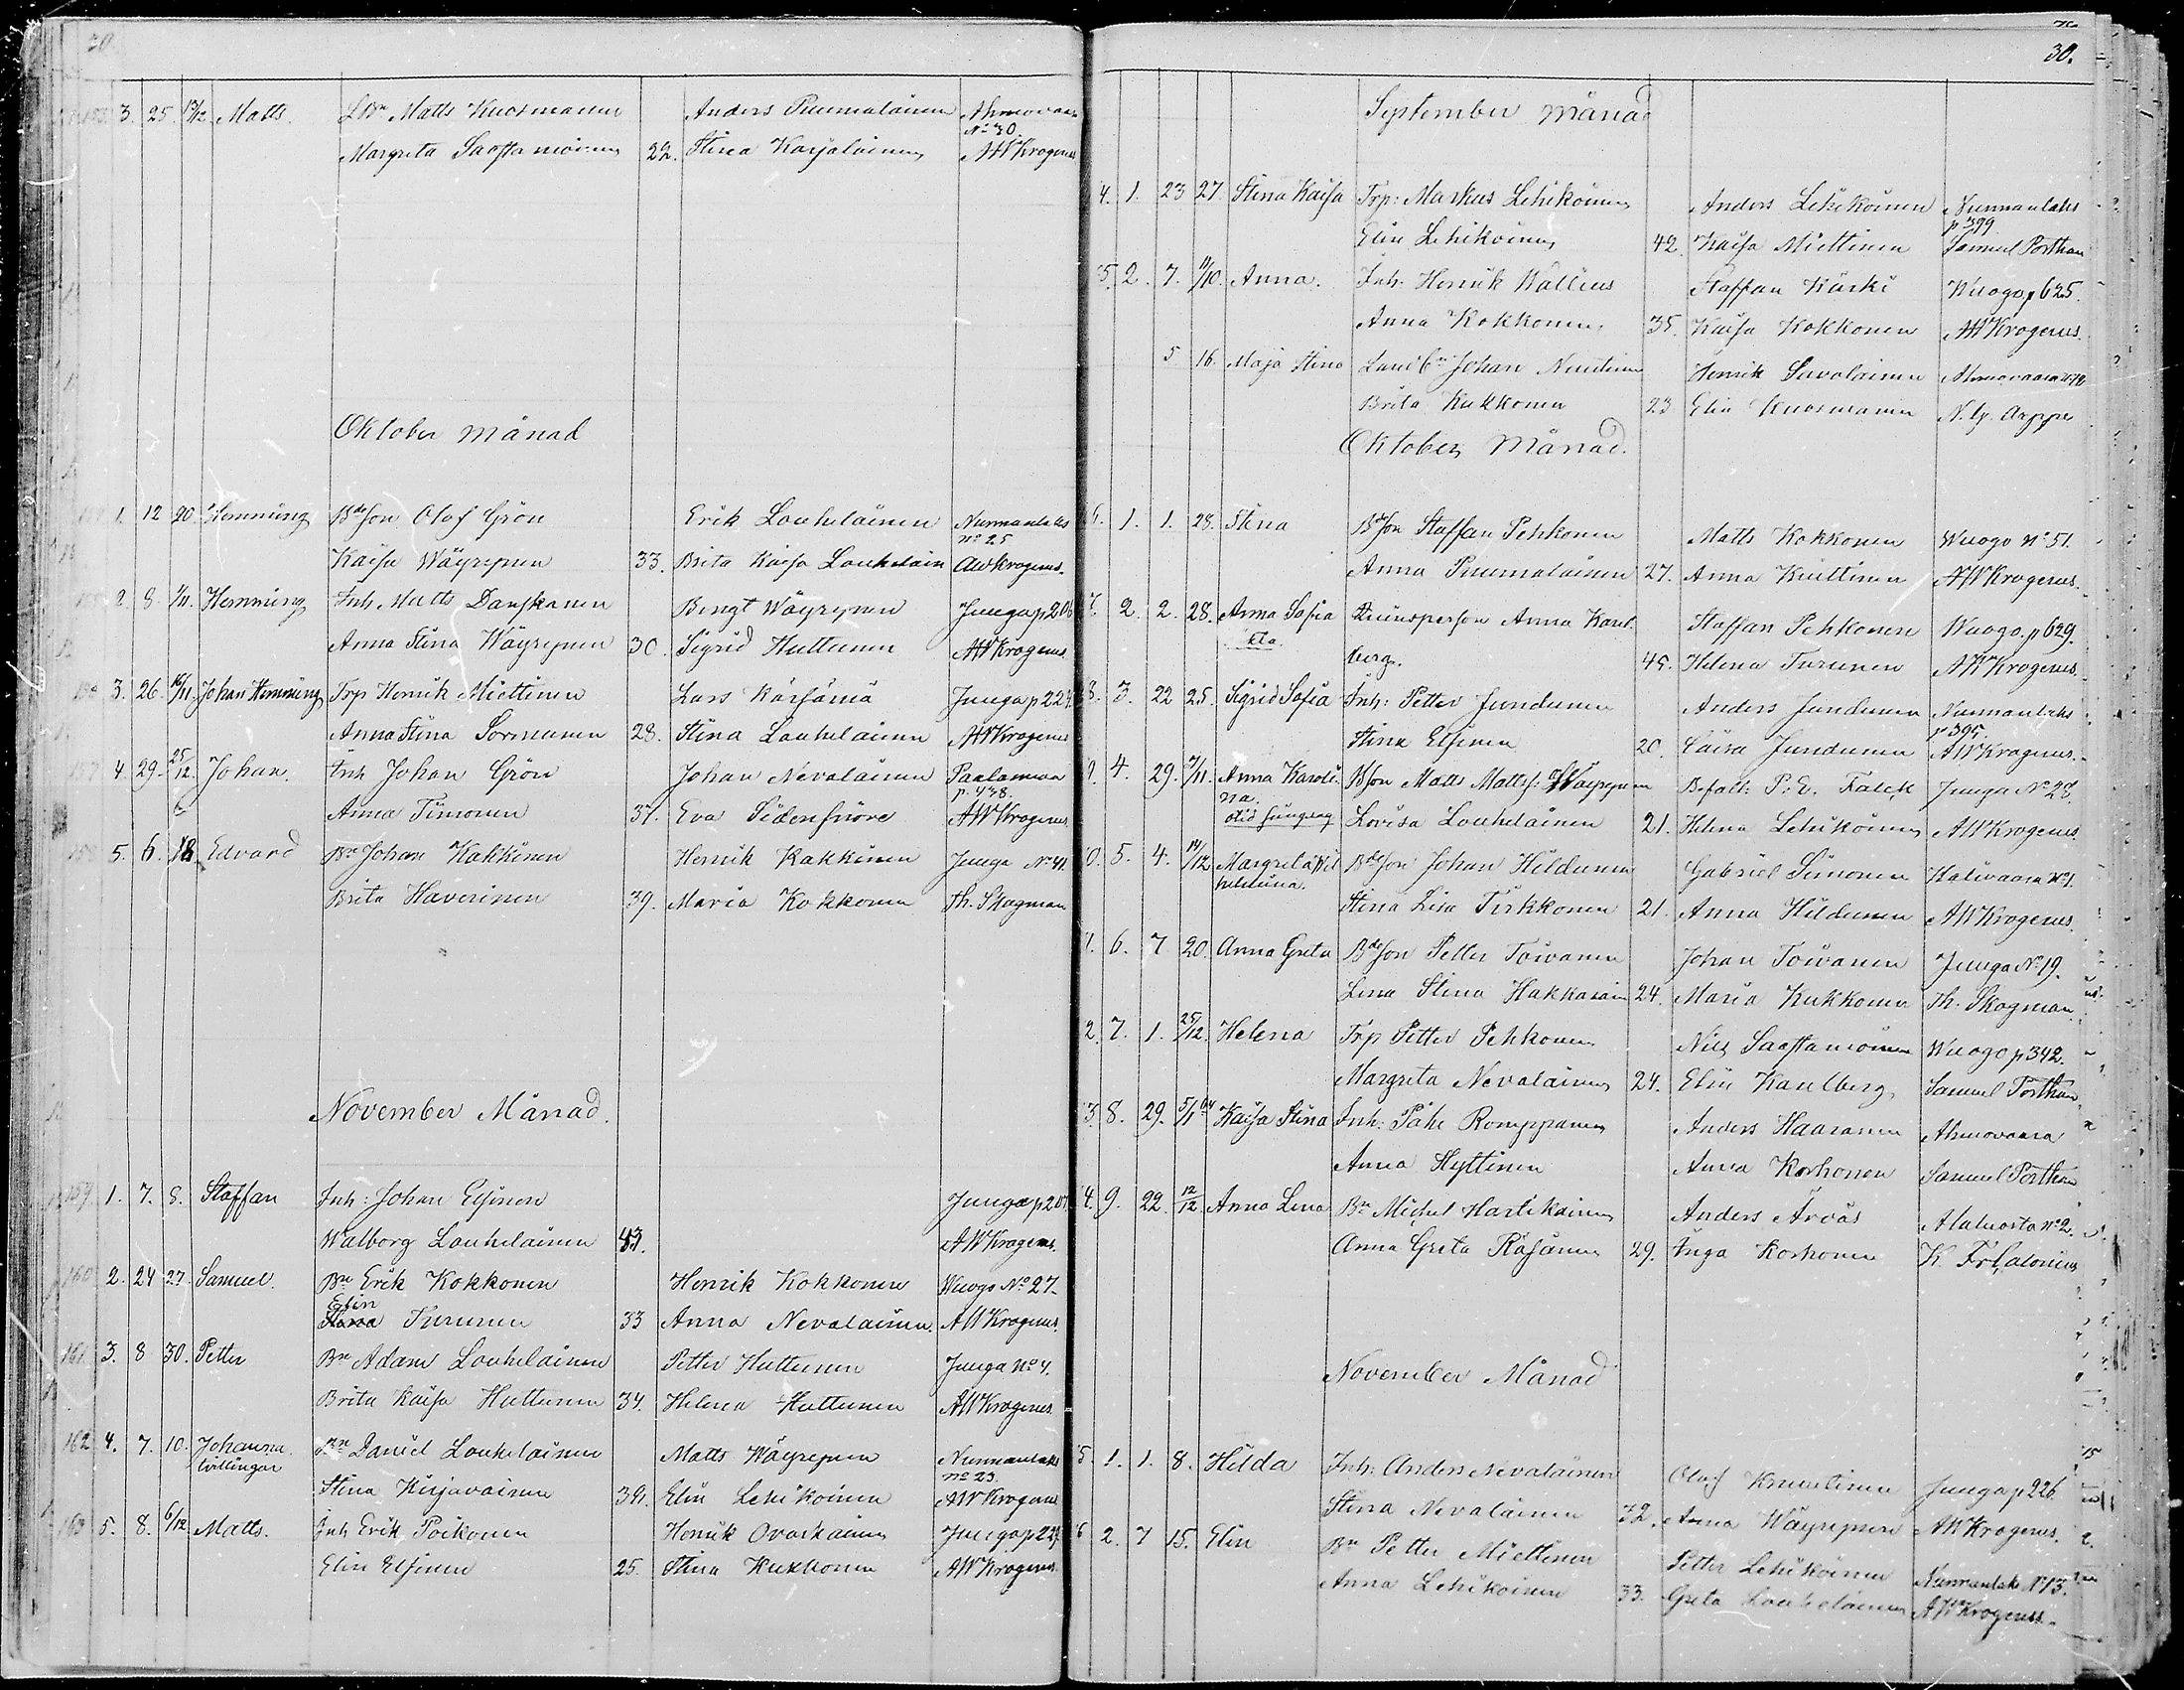 30.
3. 25. 13/12. Matts. Lbr Matts Kuosmanen Anders Puumalainen Ahmovaara
No 30.
Margreta Saastamoinen 22. Stina Karjalainen AWKrogerus
Oktober månad
1. 12 20. Hemming BdeSon Olof Grön Erik Louhelainen Nunnanlaks
no 25
Kaisa Wäyrynen 33. Brita Kaisa Louhelain AWKrogerus.
2. 8. 1/11. Hemming Inh. Matts Danskanen Bengt Wäyrynen Juuga p 206
Anna Stina Wäyrynen 30. Sigrid Huttunen AWKrogerus.
3. 26. 16/11. Johan Hemming Trp Henrik Miettinen Lars Kärsämä Juuga p 224.
Anna Stina Sormunen 28. Stina Louhelainen AWKrogerus
4. 29. 25/12. Johan. Inh Johan Grön Johan Nevalainen Paalamaa
p. 438.
Anna Timonen 37. Eva Sidensnöre AWKrogerus.
5. 6. 18. Edvard Bn Johan Kakkinen Henrik Kakkinen Juuga No 41.
Brita Haverinen 39. Maria Kokkonen Th. Skogman
November Månad.
159 1. 7. 8. Staffan Inh: Johan Elfinen Juuga p 207
Walborg Louhelainen 43. AWKrogerus.
160 2. 24 27. Samuel. Bn Erik Kokkonen Henrik Kokkonen Wuogo No 27.
Elin
Turunen 33 Anna Nevalainen. AWKrogerus.
161 3. 8 30. Petter Bn Adam Louhelainen Petter Huttunen Juuga No 4.
Brita Kaisa Huttunen 34. Helena Huttunen AWKrogerus.
162 4. 7. 10. Johanna. Bn Daniel Louhelainen Matts Wäyrynen Nunnanlaks
tvillingar no 23.
Stina Kirjavainen 39. Elin Lehikoinen AWKrogerus
163 5. 8. 6/12. Matts. Inh Erik Poikonen Henrik Ovaskainen Juuga p 229.
Elin Elfinen 25. Stina Kukkonen AWKrogerus.
30.
September månad
4. 1. 23 27. Stina Kaisa Trp: Markus Lehikoinen Anders Lehikoinen Nunnanlaks
p 399
Elin Lehikoinen 42. Kaisa Miettinen Samuel Porthan
5. 2. 7. 11/10. Anna. Inh. Henrik Wallius Staffan Kärki Wuogo p 625.
Anna Kokkonen 35. Kaisa Kokkonen AWKrogerus.
5 16. Maja Stina Landbn Johan Nuutinen Henrik Savolainen Ahmovaara
Brita Kukkonen 23 Elin Kuosmanen N. G. Arppe
Oktober Månad.
6. 1. 1. 28. Stina BdeSon Staffan Pehkonen Matts Kokkonen Wuogo No 51.
Anna Puumalainen 27. Anna Kuittinen AWKrogerus.
7. 2. 2. 28. Anna Sofia Qvinsperson Anna Karl Staffan Pehkonen Wuogo. p 629.
oä. berg. 45. Helena Turunen AWKrogerus.
8. 3. 22 25. Sigrid Sofia Inh: Petter Jundunen Anders Jundunen Nunnanlaks
p 395.
Stina Elfinen 20. Caisa Jundunen AWKrogerus.
9. 4. 29. /11. Anna Karoli- BSon Matts Mattss: Wäyrynen Befalt: P. E. Falck Juuga No 28.
na.
Lovisa Louhelainen 21. Helena Lehikoinen AWKrogerus.
0. 5. 4. 14/12 Margreta Wil- BdeSon Johan Hildunen Gabriel Simonen Halivaara No 1.
helmina.
Stina Lisa Tirkkonen 21. Anna Hildunen AWKrogerus.
1. 6. 7 20. Anna Greta BdeSon Petter Toivanen Johan Toivanen Juuga No 19.
Lena Stina Hakkarain 24. Maria Kukkonen Th. Skogman.
2. 7. 1. 25/12. Helena Trp Petter Pehkonen Nils Saastamoinen Wuogo p 342.
Margreta Nevalainen 24. Elin Karlberg Samuel Porthan
3. 8. 29. 5/1 64 Kaisa Stina Inh: Påhl Romppanen Anders Haaranen Ahmovaara
Anna Hyttinen Anna Korhonen Samuel Porthan
4. 9. 22. 12/12 Anna Lena Bn Michel Hartikainen Anders Arvås Alaluosta no 2.
Anna Greta Räsänen 29. Inga Korhonen K. Fr Calonius
November Månad
5. 1. 1. 8. Hilda Inh: Anders Nevalainen Olof Juuga p 226.
Stina Nevalainen 32. Anna Wäyrynen AWKrogerus.
6 2. 7 15. Elin Bn Petter Miettinen Petter Lehikoinen Nunnanlaks No 13.
Anna Lehikoinen 33. Greta Louhelainen AWKrogerus.